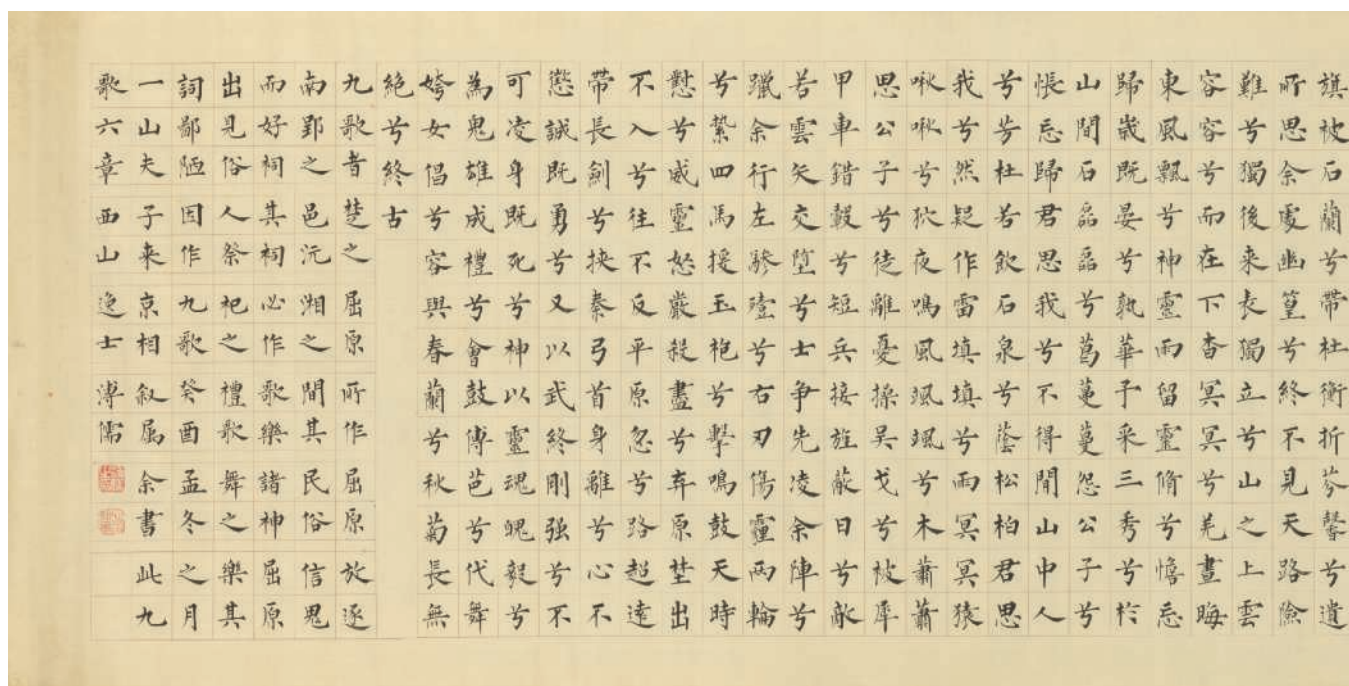 旗被石蘭兮帶杜衡折芬馨兮遺
所思余處幽篁兮終不見天路險
難兮獨後来表獨立兮山之上雲
容容兮而在下杳冥冥兮羌晝晦
東風飄兮神靈雨留靈脩兮憺忘
歸歲既晏兮孰華予采三秀兮於
山間石磊磊兮葛蔓蔓怨公子兮
悵忘歸君思我兮不得閒山中人
兮芳杜若飲石泉兮蔭松柏君思
我兮然疑作雷填填兮雨冥冥猨
啾啾兮狖夜鳴風颯颯兮木蕭蕭
思公子兮徒離憂操吴戈兮被犀
甲車錯轂兮短兵接旌蔽日兮敵
若雲矢交墮兮士争先凌余陣兮
躐余行左驂殪兮右刃傷霾兩輪
兮縶四馬援玉枹兮擊鳴鼓天時
懟兮威靈怒嚴殺盡兮弃原埜出
不入兮往不反平原忽兮路超遠
帶長劍兮挾秦弓首身離兮心不
懲誠既勇兮又以武終剛强兮不
可凌身既死兮神以靈魂魄毅兮
為鬼雄成禮兮會鼓傳芭兮代舞
姱女倡兮容與春蘭兮秋菊長無
絶兮終古
九歌者楚之屈原所作屈原放逐
南郢之邑沅湘之間其民俗信鬼
而好祠其祠必作歌樂諸神屈原
出見俗人祭祀之禮歌舞之樂其
詞鄙陋因作九歌癸酉孟冬之月
一山夫子来京相敘屬余書此九
歌六章西山逸士溥儒